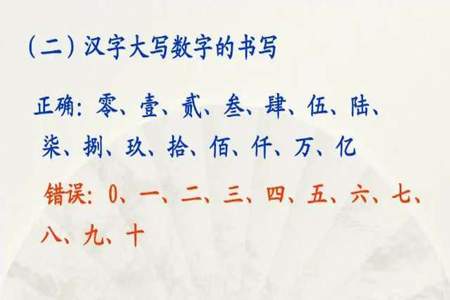 （二）汉字大写数字的书写
正确：零、壹、贰、叁、肆、伍、陆、
柒、捌、玖、拾、佰、仟、万、亿
错误：0、一、二、三、四、五、六、七、
八、九、十